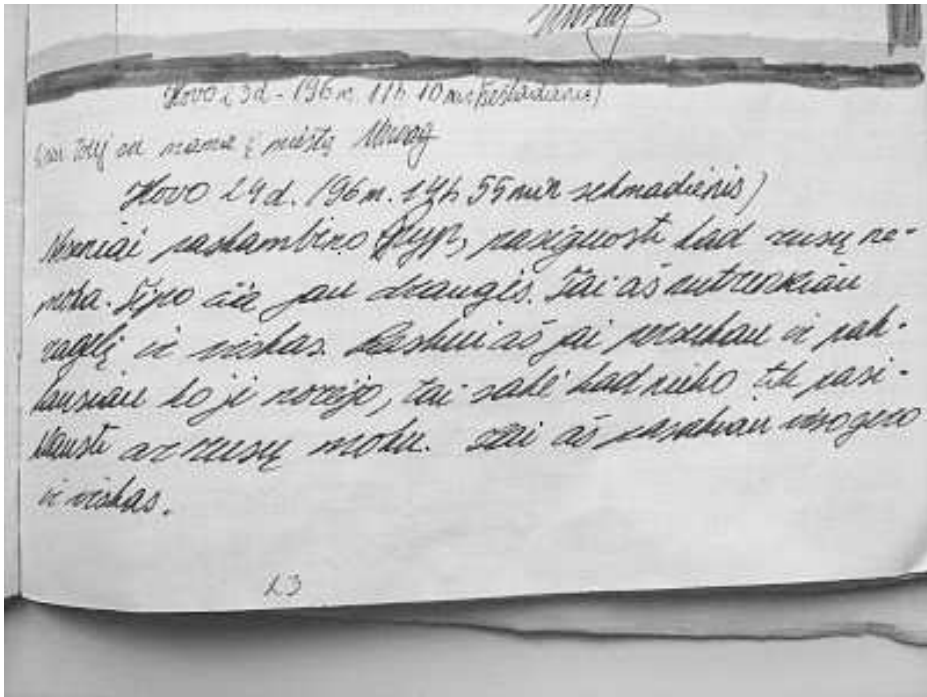 Kovo 23d. 196m. 11h 10min (šeštadienis)
su mama į miestą
Kovo 24d. 196m. 14h 55min sekmadienis)
Neseniai paskambino pasiguosti kad rusų ne-
moka. Tipo čia jau draugės. Tai aš nutrenkiau
ragelį ir viskas. Paskui aš jai perzvekau ir pak-
lausiau ko ji norėjo, tai sakė kad nieko tik pasi-
klausti ar rusų moku. Tai aš pasakiau viso gero
ir viskas.
23